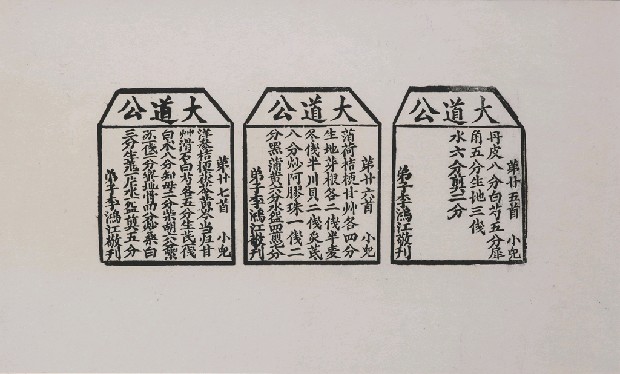 大道公
第廿五首 小兒
丹皮八分白芍五分犀
角五分生地三錢
水六分煎二分
弟子李鴻江敬刊
大道公
第廿六首 小兒
薄荷桔梗甘艸各四分
生地芽根各二錢半麦
冬錢半川貝二錢炙芪
八分炒阿膠珠一錢二
分黑蒲黃六分水盌四煎六分
弟子李鴻江敬刊
大道公
第廿七首 小兒
洋参桔梗黃芩当归甘
艸滑石白芍各五分生芪錢
白朮八分知母二分柴胡六分紫
分地骨四分桑白
三分生姜一片水盌煎五分
弟子李鴻江敬刊